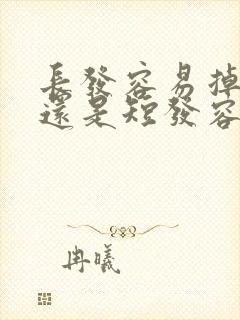 長發容易掉
還是短發容
冉曦